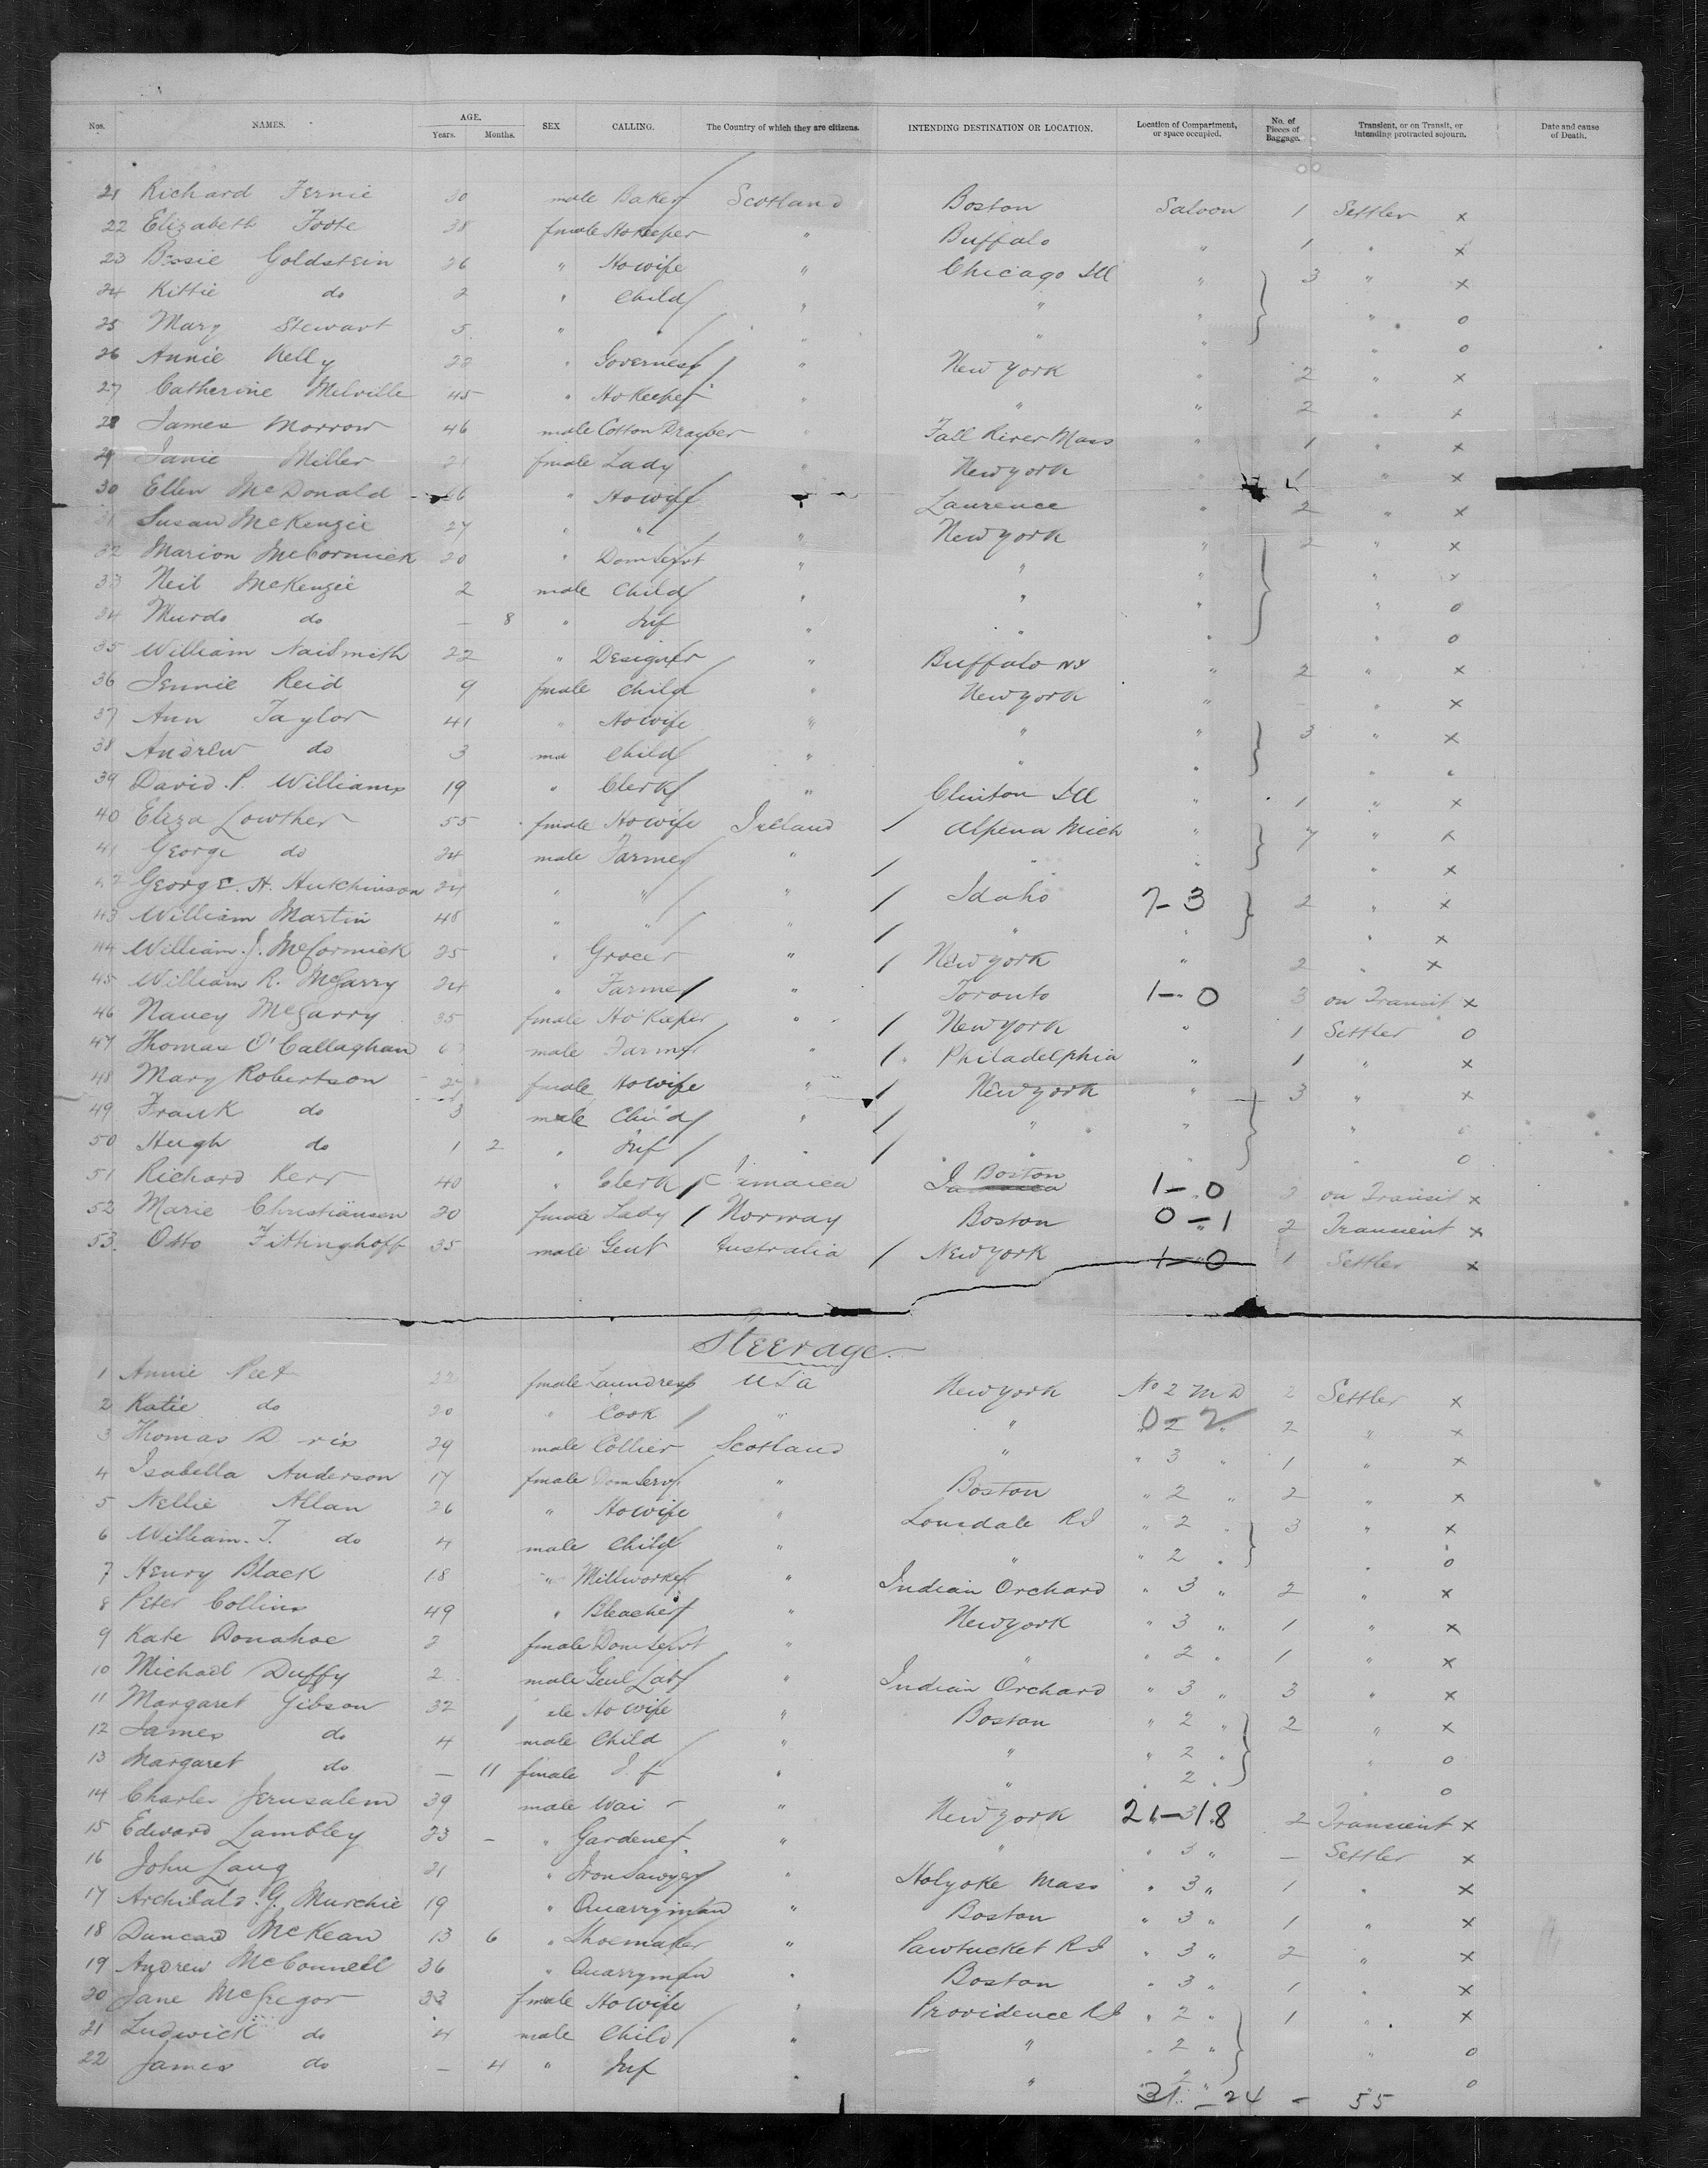 Nos. NAMES. AGE. Years. Months. SEX CALLING. The Country of which they are citizens. INTENDING DESTINATION OR LOCATION. Location of Compartment, or space occupied. No. of Pieces of Baggage. Transient, or on Transit, or intending protracted sojourn. Date and cause of Death.
21 Richard Fernie 30 male Baker Scotland Boston Saloon 1 Settler x
22 Elizabeth Foote 38 fmale Hokeeper " Buffalo " 1 " x
23 Bessie Goldstein 26 " Howife " Chicago Ill " 3 " x
24 Kittie do 2 " Child " " " " o
25 Mary Stewart 5 " " " " " " o
26 Annie Kelly 22 " Governess " New york " 2 " x
27 Catherine Melville 45 " Hokeeper " " " 2 " x
28 James Morrow 46 male Cotton Draper " Fall River Mass " 1 " x
29 Janie Miller fmale Lady " New york " 1 " x
30 Ellen McDonald 36 " Howife " Laurence " 2 " x
31 Susan McKenzie 27 " " " New york " 2 " x
32 Marion McCormick 20 " Dom Servt " " " " x
33 Neil McKenzie 2 male Child " " " " o
34 Murdo do — 8 " Inf " " " " o
35 William Naismith 22 " Designer " Buffalo NY " 2 " x
36 Jennie Reid 9 fmale Child " New york " " x
37 Ann Taylor 41 " Howife " " " 3 " x
38 Andrew do 3 mal Child " " " " "
39 David. P. Williams 19 " Clerk " Clinton Ill " 1 " x
40 Eliza Lowther 55 fmale Howife Ireland / Alpena Mich " 7 " x
41 George do 24 male Farmer " / " " " x
42 George. H. Hutchinson 24 " " " / Idaho 7-3 2 " x
43 William Martin 48 " " " / " " " x
44 William. J. McCormick 25 " Grocer " / New york " 2 " x
45 William R. McGarry 24 " Farmer " Toronto 1-0 3 on Transit x
46 Nancy McGarry 35 fmale Ho Keeper " / New york " 1 Settler o
47 Thomas O'Callaghan male Farmer " / Philadelphia " 1 " x
48 Mary Robertson 27 fmale Howife " / New york " 3 " x
49 Frank do 3 male Child " / " " " o
50 Hugh do 1 2 " Inf " / " " " o
51 Richard Kerr 40 " Clerk Jamaica Boston 1-0 2 on Transit x
52 Marie Christiansen 20 fmale Lady / Norway Boston 0-1 2 Transient x
53. Otto Fittinghoff 35 male Gent Australia / New york 1-0 1 Settler x
Steerage
1 Annie Peet 22 fmale Laundress USA New york No 2 M D 2 Settler x
2 Katie do 20 " Cook " " 0-2 2 " x
3 Thomas 29 male Collier Scotland " " 3 " 1 " x
4 Isabella Anderson 17 fmale Dom Servt " Boston " 2 " 2 " x
5 Nellie Allan 26 " Howife " Lonsdale RI " 2 " 3 " x
6 William. T. do 4 male Child " " " 2 " " o
7 Henry Black 18 " Millworker " Indian Orchard " 3 " 2 " x
8 Peter Collins 49 " Bleacher " New york " 3 " 1 " x
9 Kate Donahoe fmale Dom Servt " " " 2 " 1 " x
10 Michael Duffy male Genl Labr " Indian Orchard " 3 " 3 " x
11 Margaret Gibson 32 Howife " Boston " 2 " 2 " x
12 James do 4 male Child " " " 2 " " o
13 Margaret do — 11 fmale " " " 2 " " o
14 Charles Jerusalem 39 male " New york 21-318 2 Transient x
15 Edward Lambley 23 — " Gardener " " " 3 " — Settler x
16 John Lang 21 " Iron Sawyer " Holyoke Mass " 3 " 1 " x
17 Archibald. G. Murchie 19 " Quarryman " Boston " 3 " 1 " x
18 Duncan McKean 13 6 " Shoemaker " Pawtucket RI " 3 " 2 " x
19 Andrew McConnell 36 " Quarryman " Boston " 3 " 1 " x
20 Jane McGregor 33 fmale Howife " Providence RI " 2 " 1 " x
21 Ludwick do 4 male Child " " " 2 " " o
22 James do — 4 " Inf " " " o
31 - 24 - 55